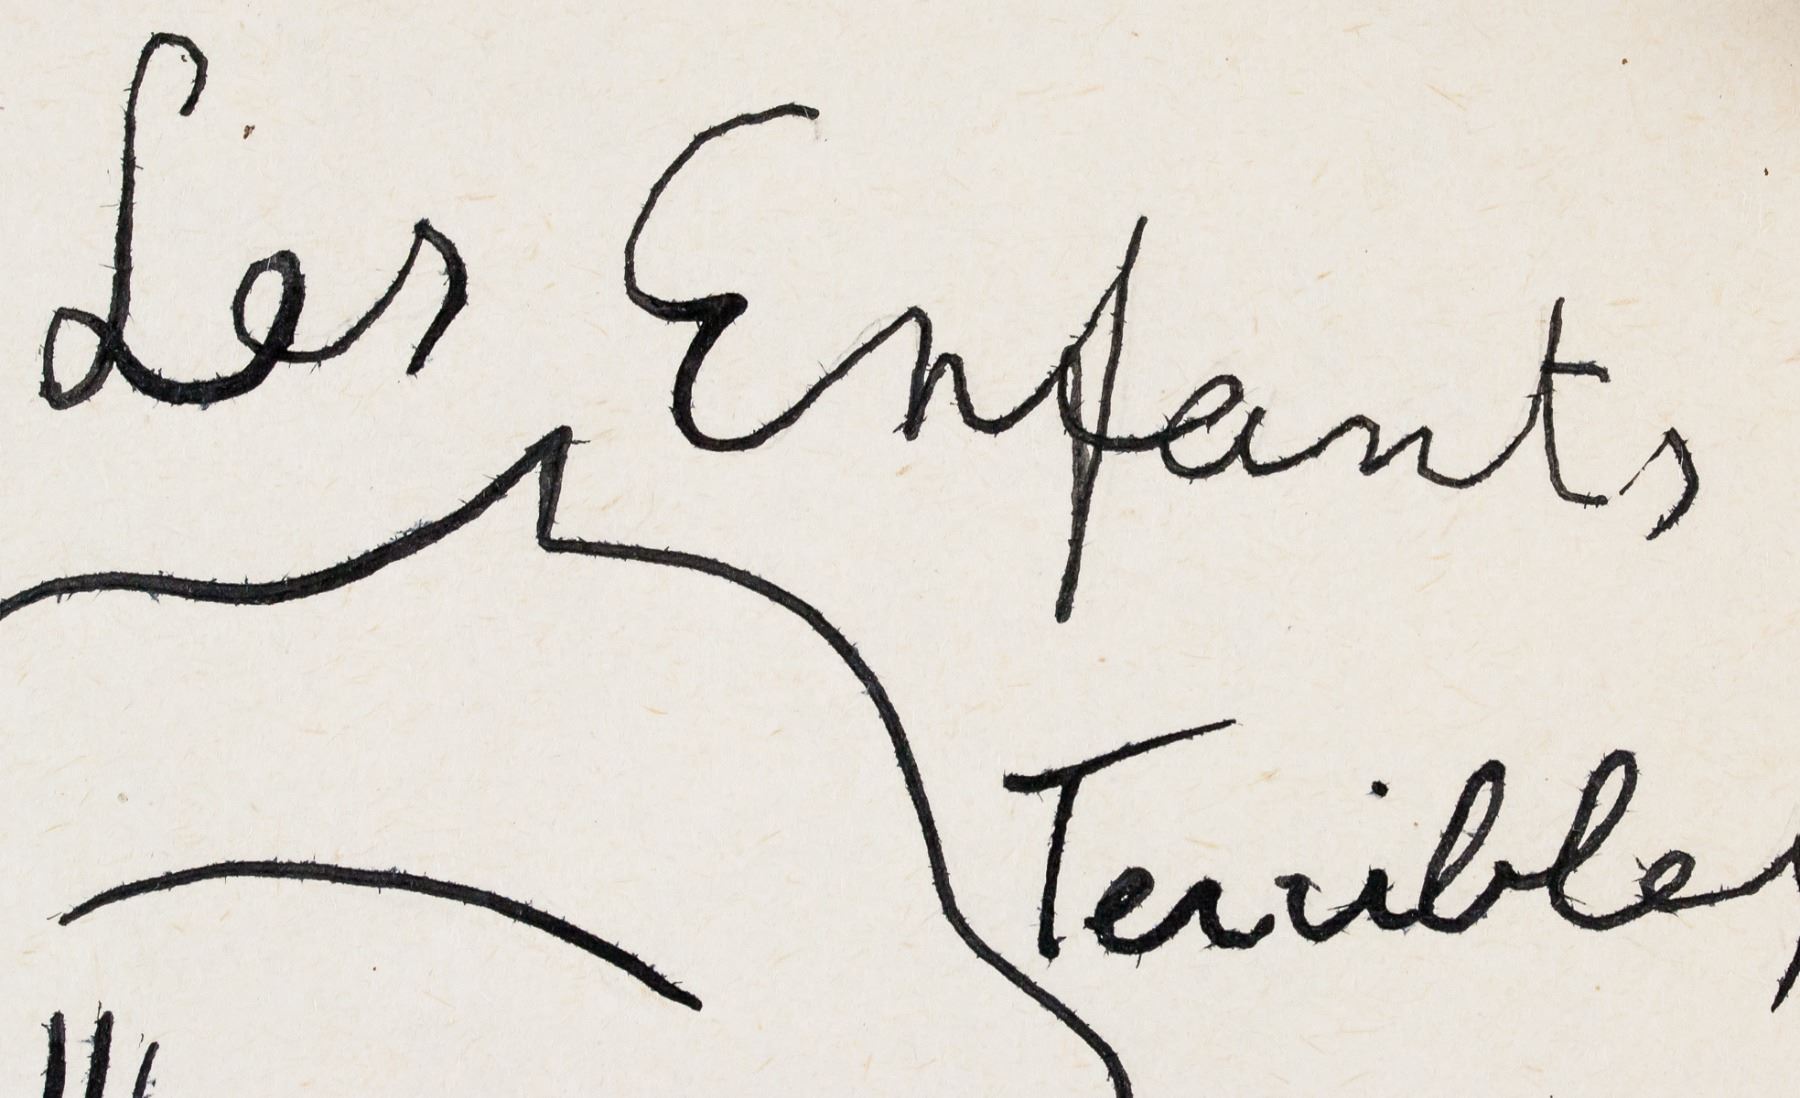 Les Enfants
Terribles